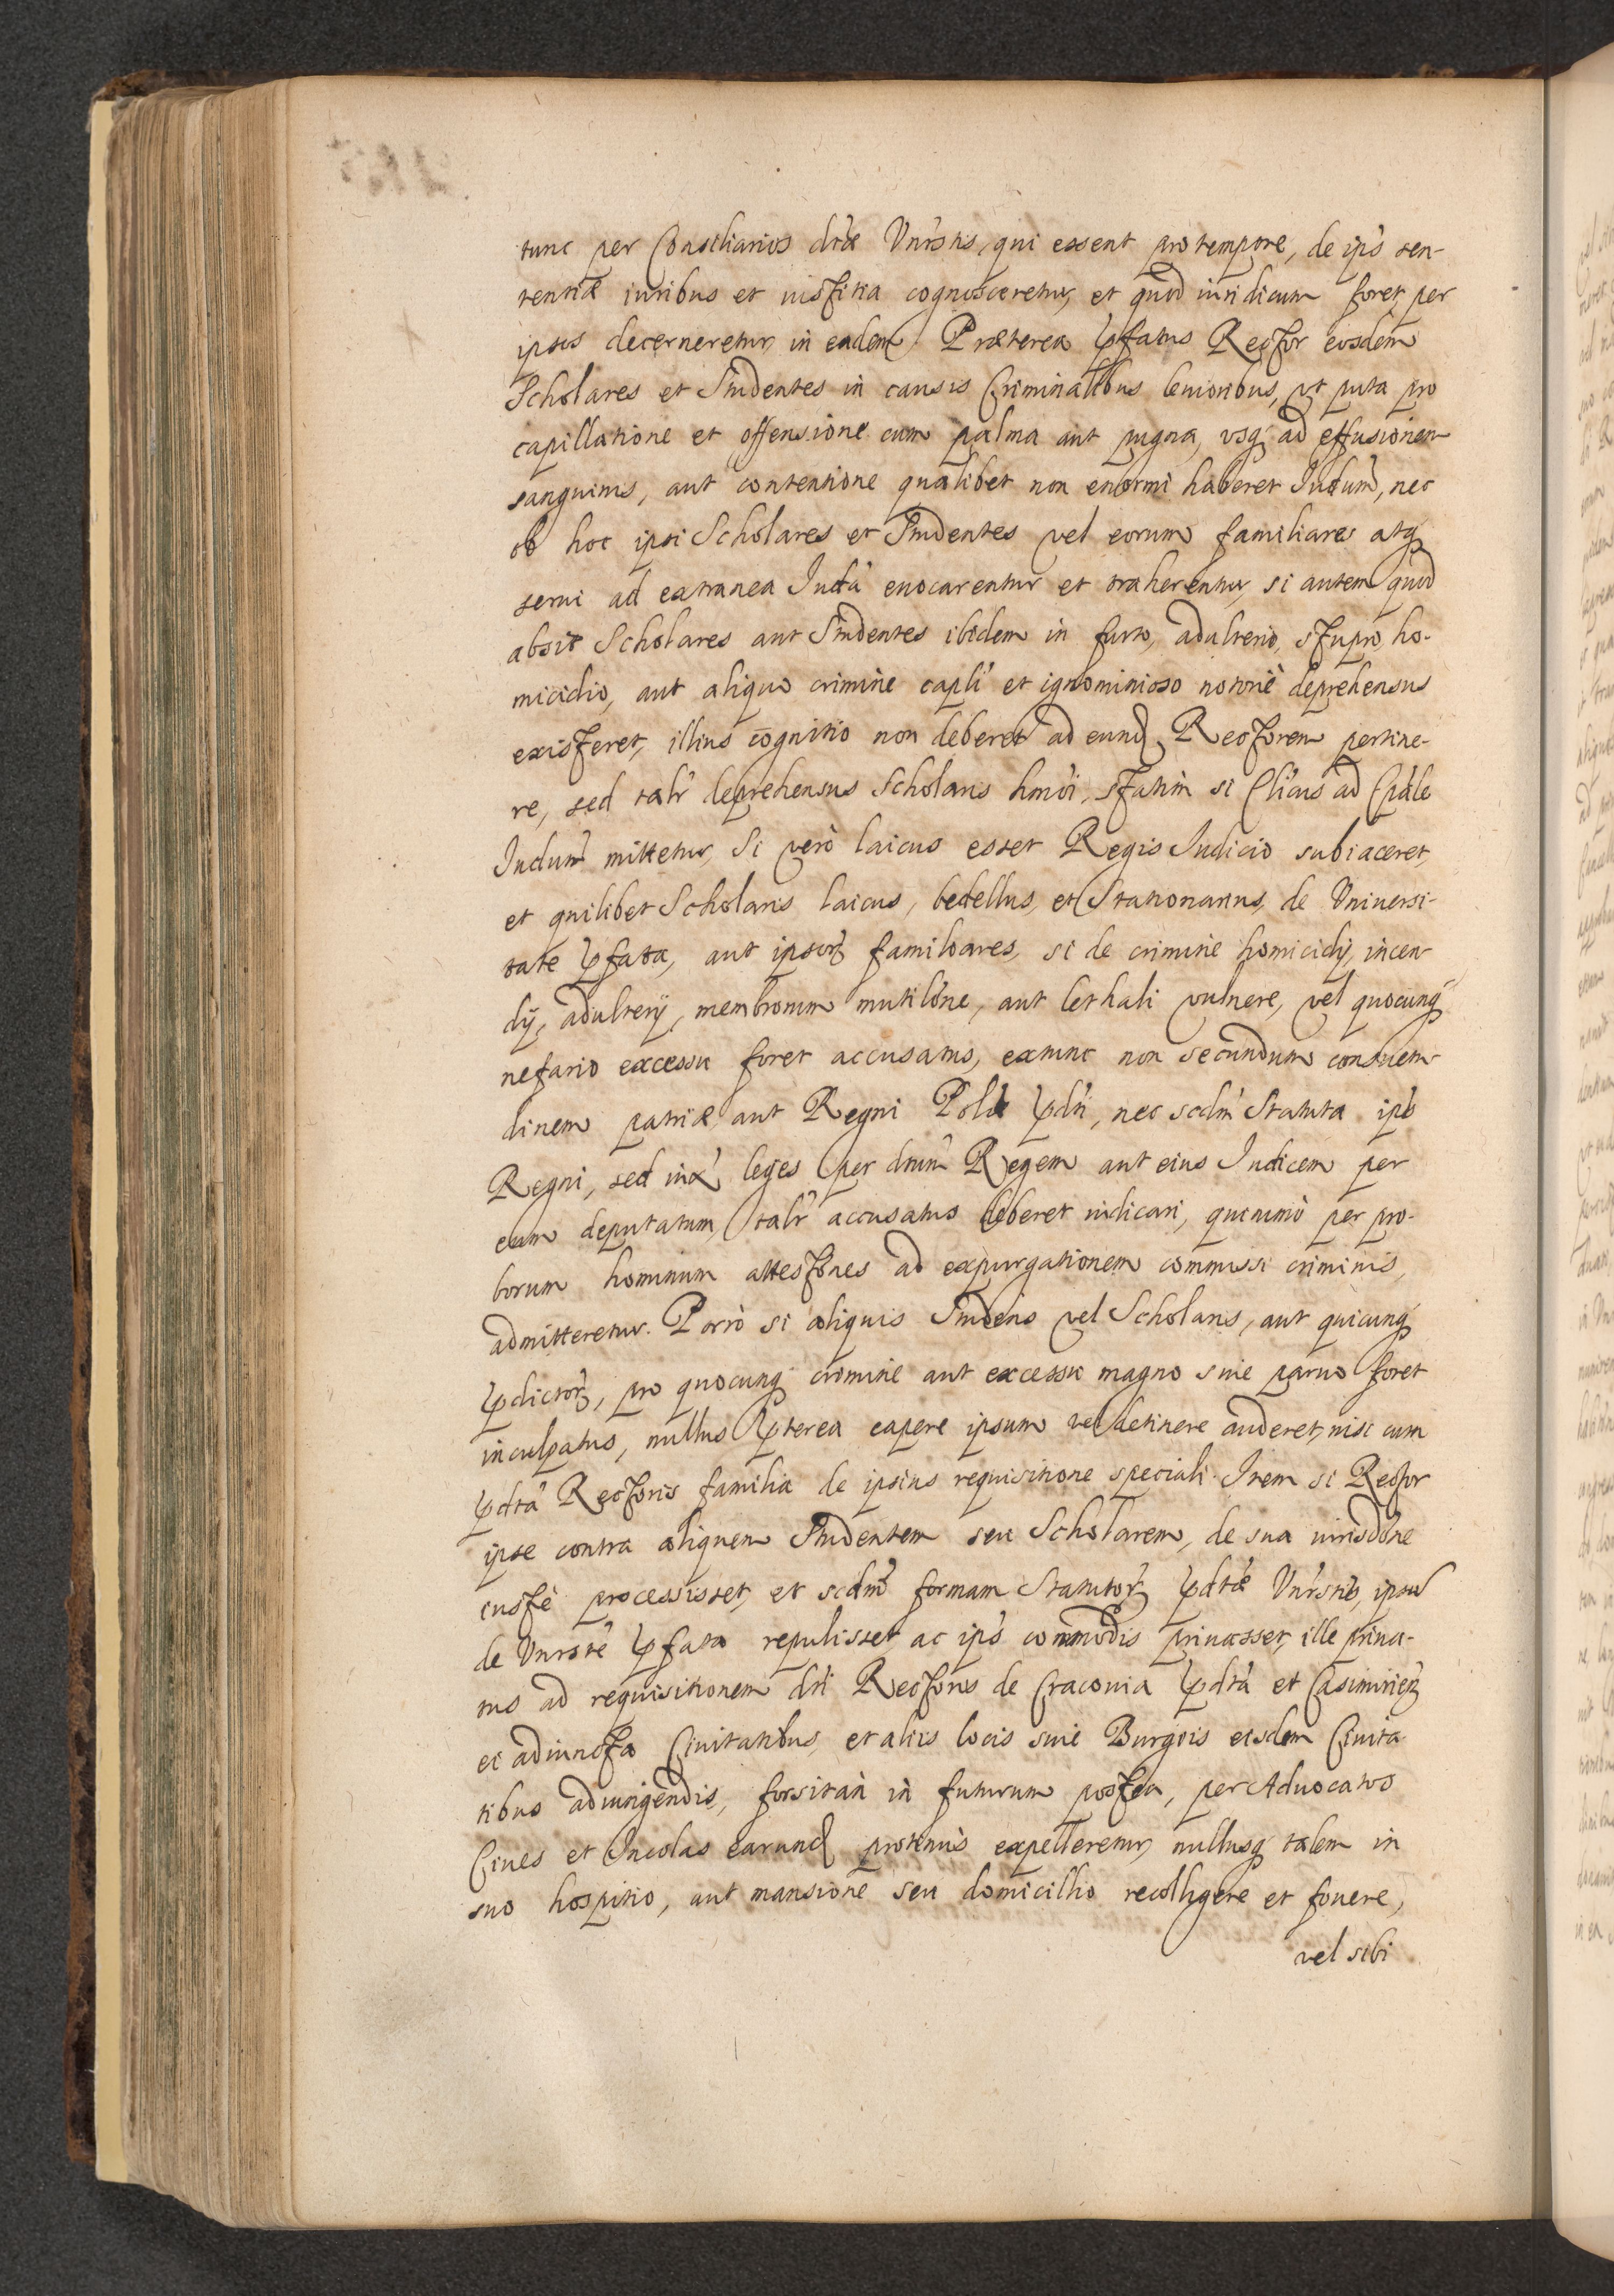 tunc per Consiliarios dictæ Vnirstis, qui essent pro tempore, de ips sen-
tentiæ iuribus et iustitia cognosceretur, et quod iuridicum foret, per
ipsos decerneretur in eadem Præterea pfatus Rector eosdem
Scholares et Studentes in causis Criminalibus leuioribus, vt puta pro
capillatione et offensione cum palma aut pugna, vsq ad effusionem
sanguinis, aut contentione qualibet non enormi haberet Iudum, nec
ob hoc ipsi Scholares et Studentes vel eorum familiares atq
serui ad extranea Iudia euocarentur et traherentur, si autem quod
absit Scholares aut Studentes ibidem in furto, adulterio, stupro, ho-
micidio, aut aliquo crimine capli et ignominioso notoriè deprehensus
existeret, illius cognitio non deberet ad eund Rectorem pertine-
re, sed talr deprehensus Scholaris hmoi, statim si Clicus ad Epale
Iudum mittetur, Si verò laicus esset Regis Iudicio subiaceret,
et quilibet Scholaris laicus, bedellus, et Stationarius, de Vniuersi-
tate pfata, aut ipsor familiares, si de crimine homicidij, incen-
dij, adulterij, membrorum mutilone, aut lethali vulnere, vel quocunq
nefario excessu foret accusatus, extunc non secundum consuetu-
dinem patriæ aut Regni Polæ pdti, nec scdm Statuta ips
Regni, sed iux leges per dtum Regem aut eius Iudicem per
eum deputatum, talr accusatus deberet iudicari, quinimò per pro-
borum hominum attestones ad expurgationem commissi criminis,
admitteretur. Porrò si aliquis Studens vel Scholaris, aut quicunq
pdictor, pro quocunq crimine aut excessu magno siue paruo foret
inculpatus, nullus pterea capere ipsum vel detinere auderet, nisi cum
pdta Rectoris familia de ipsius requisitione speciali. Item si Rector
ipse contra aliquem Studentem seu Scholarem, de sua iurisdone
iustè processisset, et scdm formam Statutor pdtæ Vnirstis, ipsu
de Vnirste pfata repulisset ac ips commodis priuasset, ille priua-
tus ad requisitionem dti Rectoris de Cracouia pdta et Casimirien
ei adiuncta Ciuitatibus, et aliis locis siue Burgis eisdem Ciuita
tibus adiungendis, forsitan in futurum postea, per Aduocatos
Ciues et Incolas earund protenus expelleretur, nullusq talem in
suo hospitio, aut mansione seu domicilio recolligere et fouere,
vel sibi